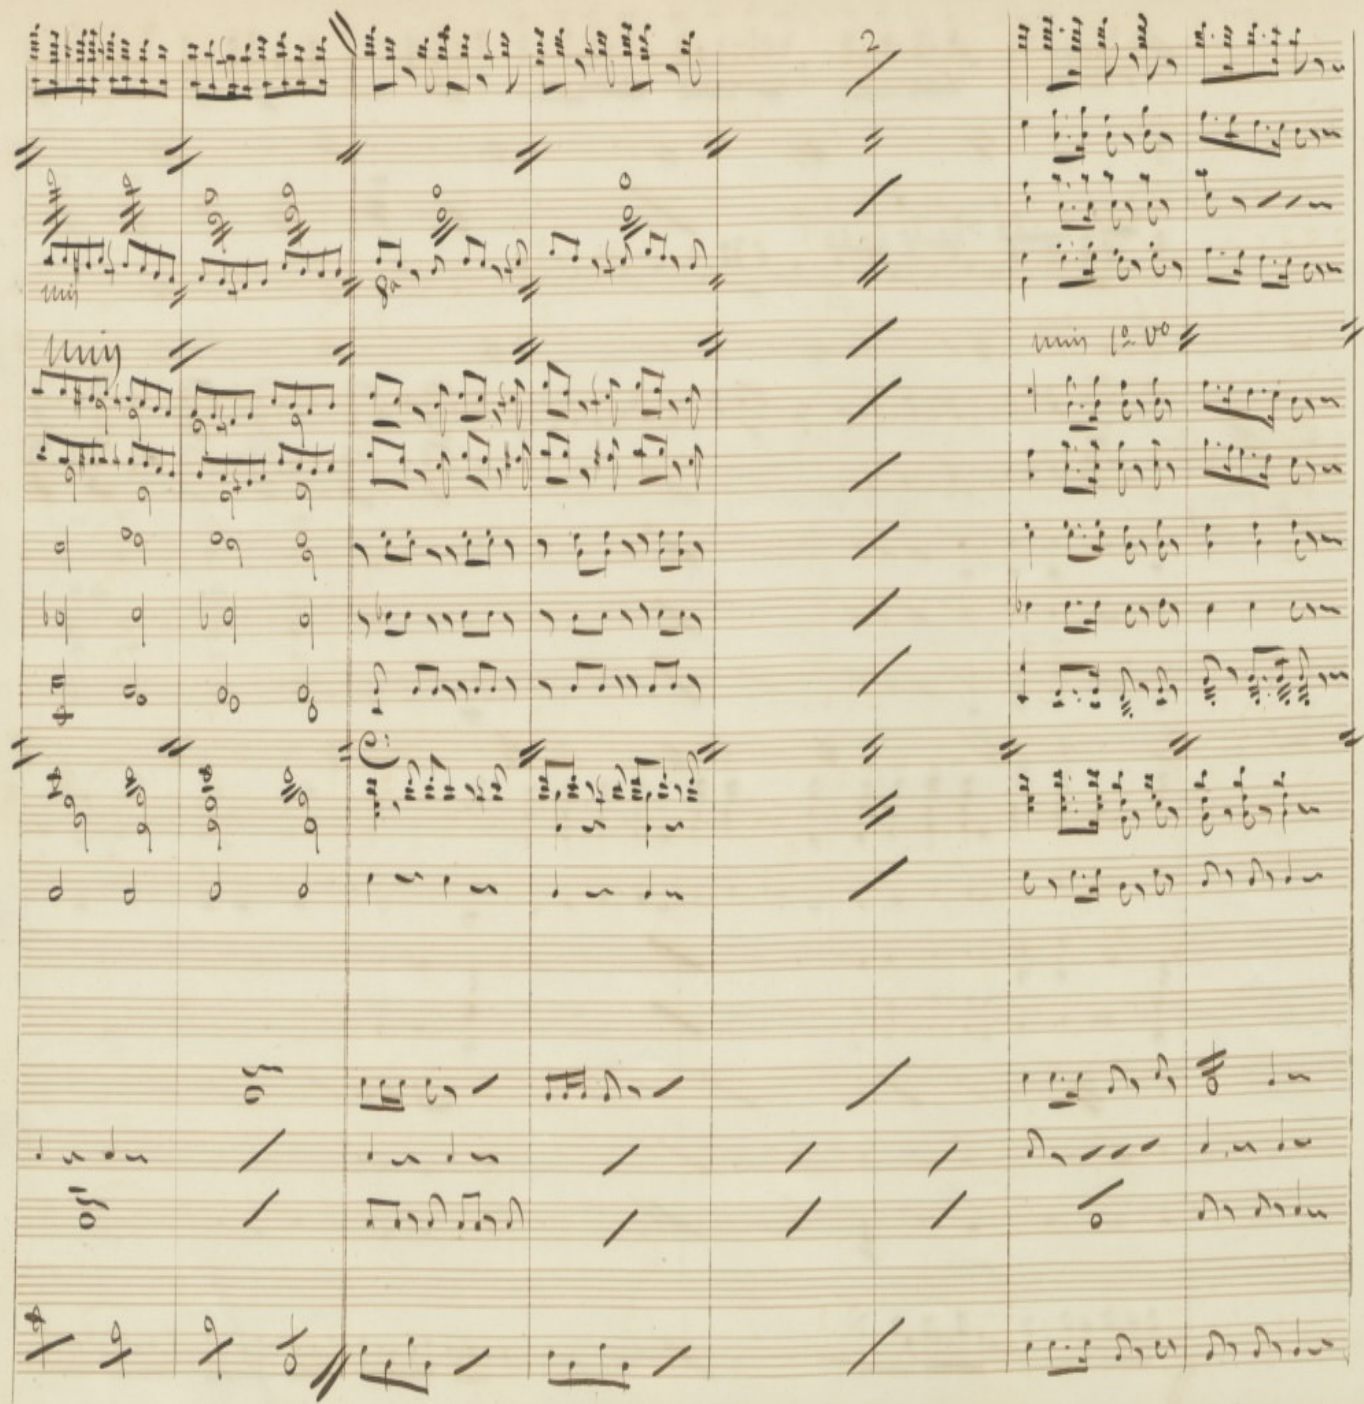 2
unis
8a
unis
unis 1º Vº